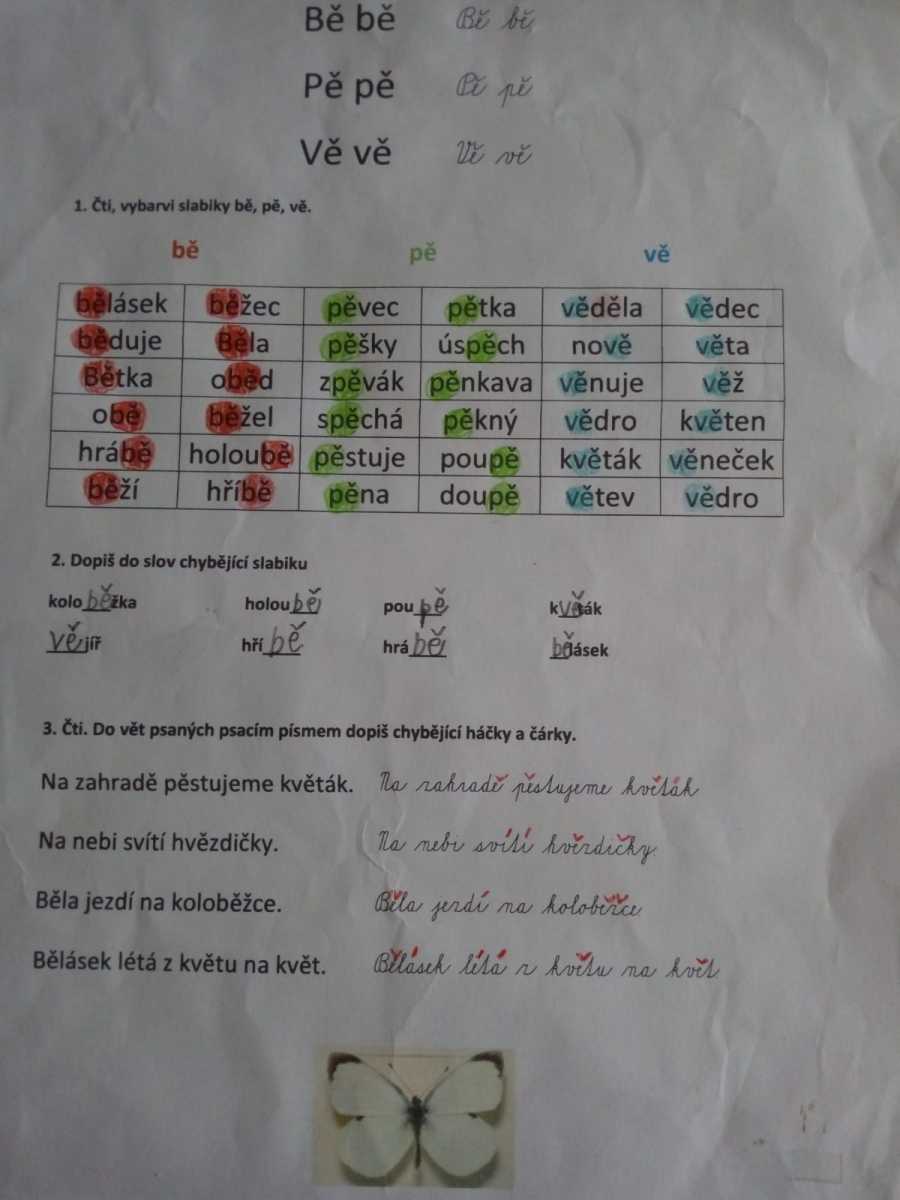 Bě bě Bě bě
Pě pě Pě pě
Vě vě Vě vě
1. Čti, vybarvi slabiky bě, pě, vě.
bě pě vě
bělásek běžec pěvec pětka věděla vědec
běduje Běla pěšky úspěch nově věta
Bětka oběd zpěvák pěnkava věnuje věž
obě běžel spěchá pěkný vědro květen
hrábě holoubě pěstuje poupě květák věneček
běží hříbě pěna doupě větev vědro
2. Dopiš do slov chybějící slabiku
koloběžka holoubě poupě květák
vějíř hříbě hrábě bělásek
3. Čti. Do vět psaných psacím písmem dopiš chybějící háčky a čárky.
Na zahradě pěstujeme květák. Na zahradě pěstujeme květák
Na nebi svítí hvězdičky. Na nebi svítí hvězdičky.
Běla jezdí na koloběžce. Běla jezdí na koloběžce
Bělásek létá z květu na květ. Bělásek létá z květu na květ